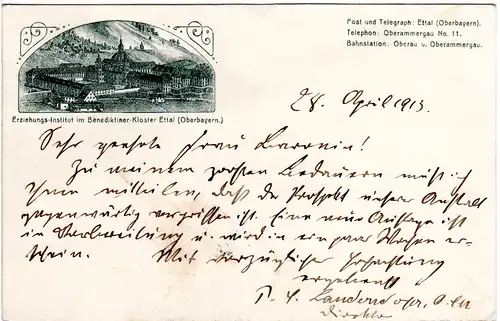 Post und Telegraph: Ettal (Oberbayern).
Telephon: Oberammergau No. 11.
Bahnstation: Oberau u. Oberammergau.
Erziehungs-Institut im Benediktiner-Kloster Ettal (Oberbayern.)
28. April 1913.
Sehr geehrte Frau Baronin!
Zu meinem großen Bedauern muß ich
Ihnen mitteilen, daß der Prospekt unserer Anstalt
gegenwärtig vergriffen ist. Eine neue Auflage ist
in Vorbereitung u. wird in ein paar Wochen er-
scheinen. Mit vorzüglicher Hochachtung
ergebenst
Direktor